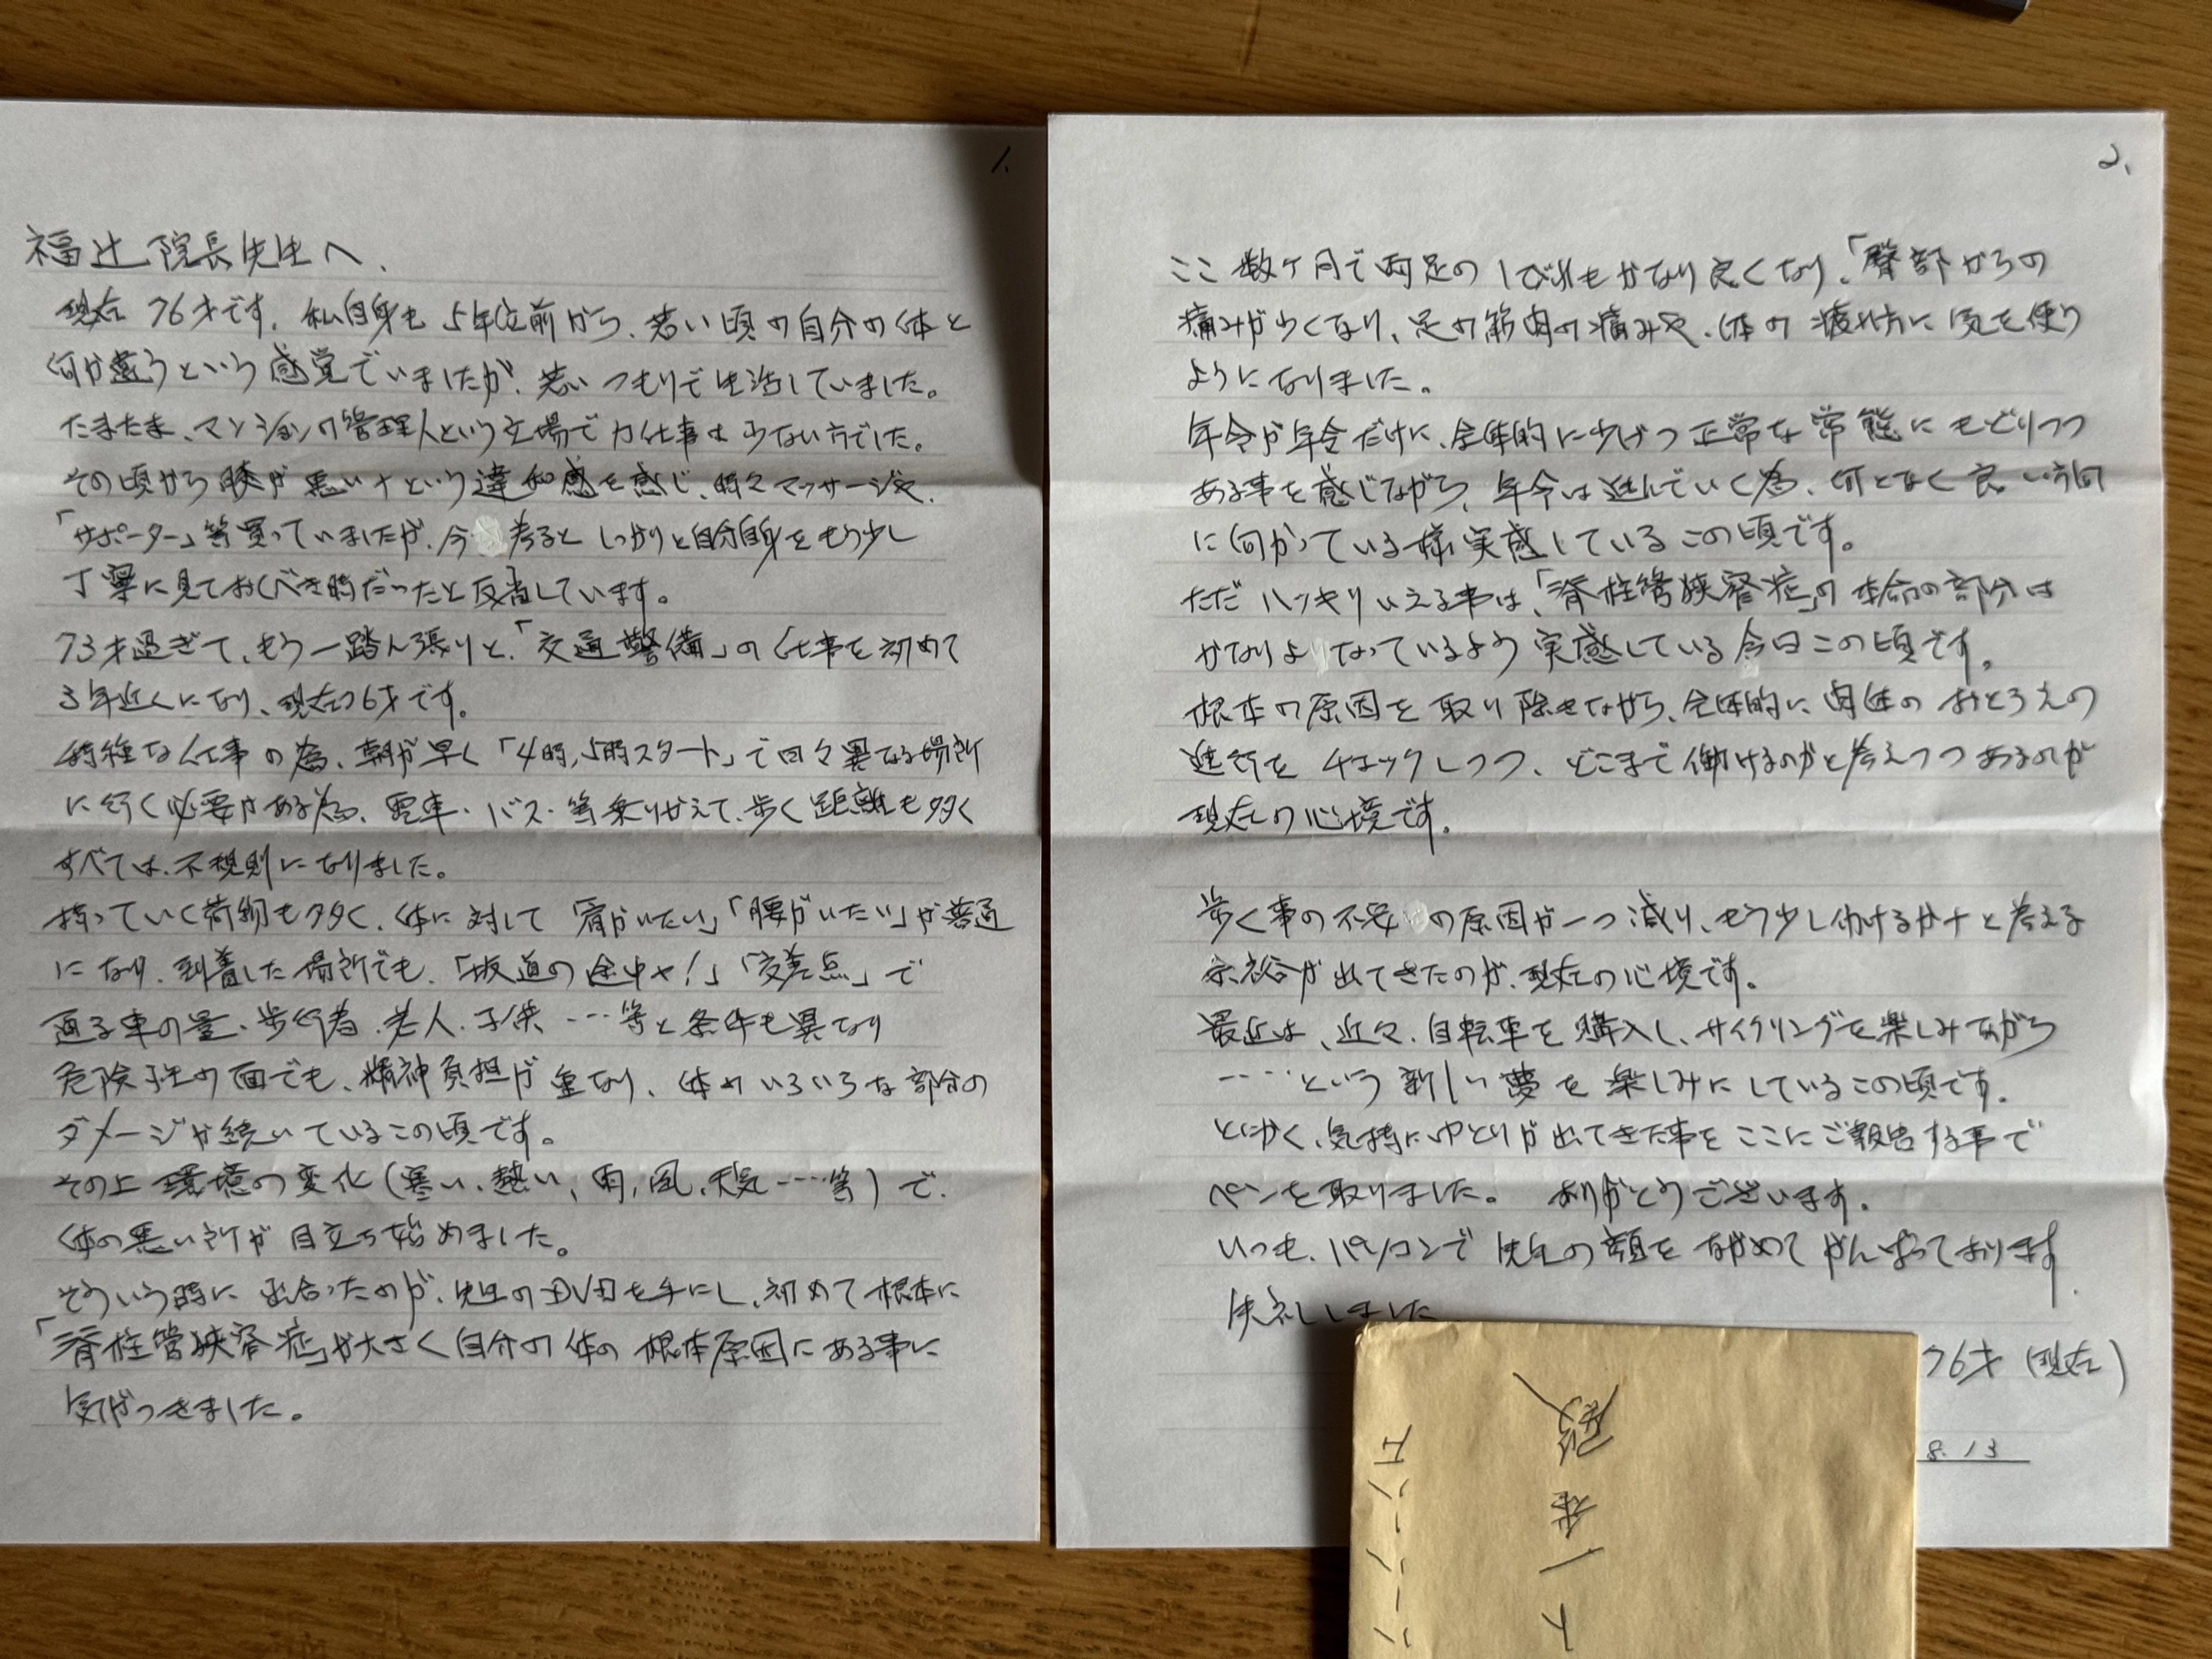 1.
福辻院長先生へ、
現在76才です。私自身も5年位前から、若い頃の自分の体と
何か違うという感覚でいましたが、若いつもりで生活していました。
たまたま、マンションの管理人という立場で力仕事は少ない方でした。
その頃から膝が悪いナという違和感を感じ、時々マッサージや、
「サポーター」等買っていましたが、今考ると しっかりと自分自身をもう少し
丁寧に見ておくべき時だったと反省しています。
73才過ぎて、もう一踏ん張りと、「交通警備」の仕事を初めて
3年近くになり、現在76才です。
特種な仕事の為、朝が早く「4時,5時スタート」で日々異なる場所
に行く必要がある為、電車・バス・等乗りかえて、歩く距離も多く
すべては、不規則になりました。
持っていく荷物も多く、体に対して「肩がいたい」「腰がいたい」が普通
になり、到着した場所でも、「坂道の途中や!」「交差点」で
通る車の量、歩行者、老人、子供…等と条件も異なり
危険性の面でも、精神負担が重なり、体のいろいろな部分の
ダメージが続いているこの頃です。
その上環境の変化(寒い、熱い、雨,風,天気……等)で、
体の悪い所が目立ち始めました。
そういう時に出合ったのが、先生のDVDを手にし、初めて根本に
「脊柱管狭窄症」が大きく自分の体の根本原因にある事に
気がつきました。
2、
ここ数ケ月で両足のしびれもかなり良くなり、「臀部からの
痛みが少くなり、足の筋肉の痛みや、体の疲れ方に気を使う
ようになりました。
年令が年令だけに、全体的に少しづつ正常な常態にもどりつつ
ある事を感じながら、年令は進んでいく為、何となく良い方向
に向かっている様実感しているこの頃です。
ただハッキリいえる事は、「脊柱管狭窄症」の本命の部分は
かなりよくなっているよう実感している今日この頃です。
根本の原因を取り除きながら、全体的に肉体のおとろえの
進行をチェックしつつ、どこまで働けるのかと考えつつあるのが
現在の心境です。
歩く事の不安の原因が一つ減り、もう少し働けるかナと考える
余裕が出てきたのが、現在の心境です。
最近は、近々、自転車を購入し、サイクリングを楽しみながら
……という新しい夢を楽しみにしているこの頃です。
とにかく、気持にゆとりが出てきた事をここにご報告する事で
ペンを取りました。 ありがとうございます。
いつも、パソコンで先生の顔をながめてがんばっております。
失礼しました
76才(現在)
8.13